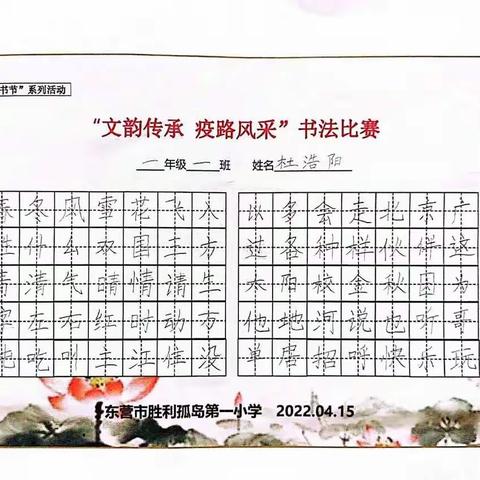 书节”系列活动
“文韵传承 疫路风采”书法比赛
一年级一班 姓名杜浩阳
春冬风雪花飞入
姓什么双国王方
青清气晴情请生
字左右红时动万
跑吃叫主江住没
以多会走北京广
过各种样伙伴这
太阳校金秋因为
他地河说也听哥
单居招呼快乐玩
东营市胜利孤岛第一小学 2022.04.15